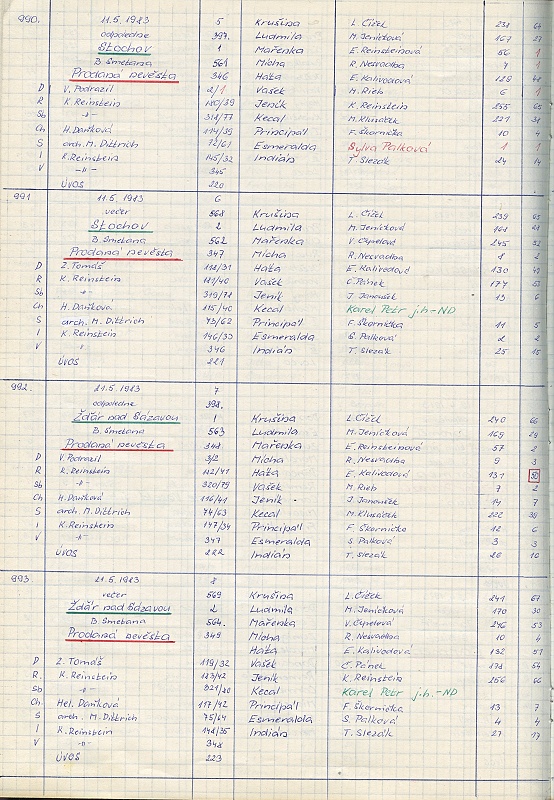 990. 11.5.1983 5 Krušina L. Čížek 238 64
odpoledne 397. Ludmila M. Jeníčková 167 27
Stochov 1 Mařenka E. Reinsteinová 56 1
B. Smetana 561 Mícha R. Nesvadba 7 1
Prodaná nevěsta 346 Háta E. Kalivodová 129 48
D V. Podrazil 2/1 Vašek M. Rieb 6 1
R K. Reinstein 140/39 Jeník K. Reinstein 255 65
Sb -"- 318/77 Kecal M. Klusáček 221 38
Ch H. Daňková 114/39 Principál F. Škornička 10 4
S arch. M. Dittrich 72/61 Esmeralda Sylva Palková 1 1
I K. Reinstein 145/32 Indián T. Slezák 24 14
V -"- 345
ÚVOS 220
991 11.5.1983 6
večer 568 Krušina L. Čížek 239 65
Stochov 2 Ludmila M. Jeníčková 168 28
B. Smetana 562 Mařenka V. Cynelová 245 52
Prodaná nevěsta 347 Mícha R. Nesvadba 1 2
D Z. Tomáš 118/31 Háta E. Kalivodová 130 49
R K. Reinstein 141/40 Vašek Č. Pánek 177 53
Sb -"- 319/78 Jeník J. Janoušek 13 6
Ch H. Daňková 115/40 Kecal Karel Petr j.h.-ND
S arch. M. Dittrich 73/62 Principál F. Škornička 11 5
I K. Reinstein 146/33 Esmeralda S. Palková 2 2
V -"- 346 Indián T. Slezák 25 15
ÚVOS 221
992. 11.5.1983 7
odpoledne 398.
Žďár nad Sázavou 1 Krušina L. Čížek 240 66
B. Smetana 563 Ludmila M. Jeníčková 169 29
Prodaná nevěsta 348 Mařenka E. Reinsteinová 57 2
D V. Podrazil 3/2 Mícha R. Nesvadba 9 3
R K. Reinstein 142/41 Háta E. Kalivodová 131 50
Sb -"- 320/79 Vašek M. Rieb 7 2
Ch H. Daňková 116/41 Jeník J. Janoušek 14 7
S arch. M. Dittrich 74/63 Kecal M. Klusáček 222 39
I K. Reinstein 147/34 Principál F. Škornička 12 6
V -"- 347 Esmeralda S. Palková 3 3
ÚVOS 222 Indián T. Slezák 26 16
993. 11.5.1983 8
večer 569 Krušina L. Čížek 241 67
Žďár nad Sázavou 2 Ludmila M. Jeníčková 170 30
B. Smetana 564. Mařenka V. Cynelová 246 53
Prodaná nevěsta 349 Mícha R. Nesvadba 10 4
Háta E. Kalivodová 132 51
D Z. Tomáš 119/32 Vašek Č. Pánek 178 54
R. K. Reinstein 143/42 Jeník K. Reinstein 256 66
Sb -"- 321/80 Kecal Karel Petr j.h.-ND
Ch. Hel. Daňková 117/42 Principál F. Škornička 13 7
S arch. M. Dittrich 75/64 Esmeralda S. Palková 4 4
I K. Reinstein 148/35 Indián T. Slezák 27 17
V -"- 348
ÚVOS 223